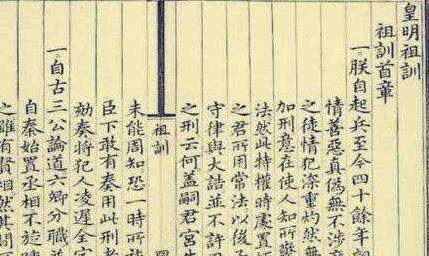 皇明祖訓
祖訓首章
一朕自起兵至今四十餘年親
情善惡真偽無不涉
之徒情犯深重灼然無
加刑意在使人知所警
法然此特權時處置
之君所用常法以後子
守律與大誥並不許用
之刑云何蓋嗣君宮生
祖訓
未能周知恐一時所施
臣下敢有奏用此刑者
劾奏將犯人凌遲全家
一自古三公論道六卿分職並
自秦始置丞相不旋踵
之雖有賢相然其間